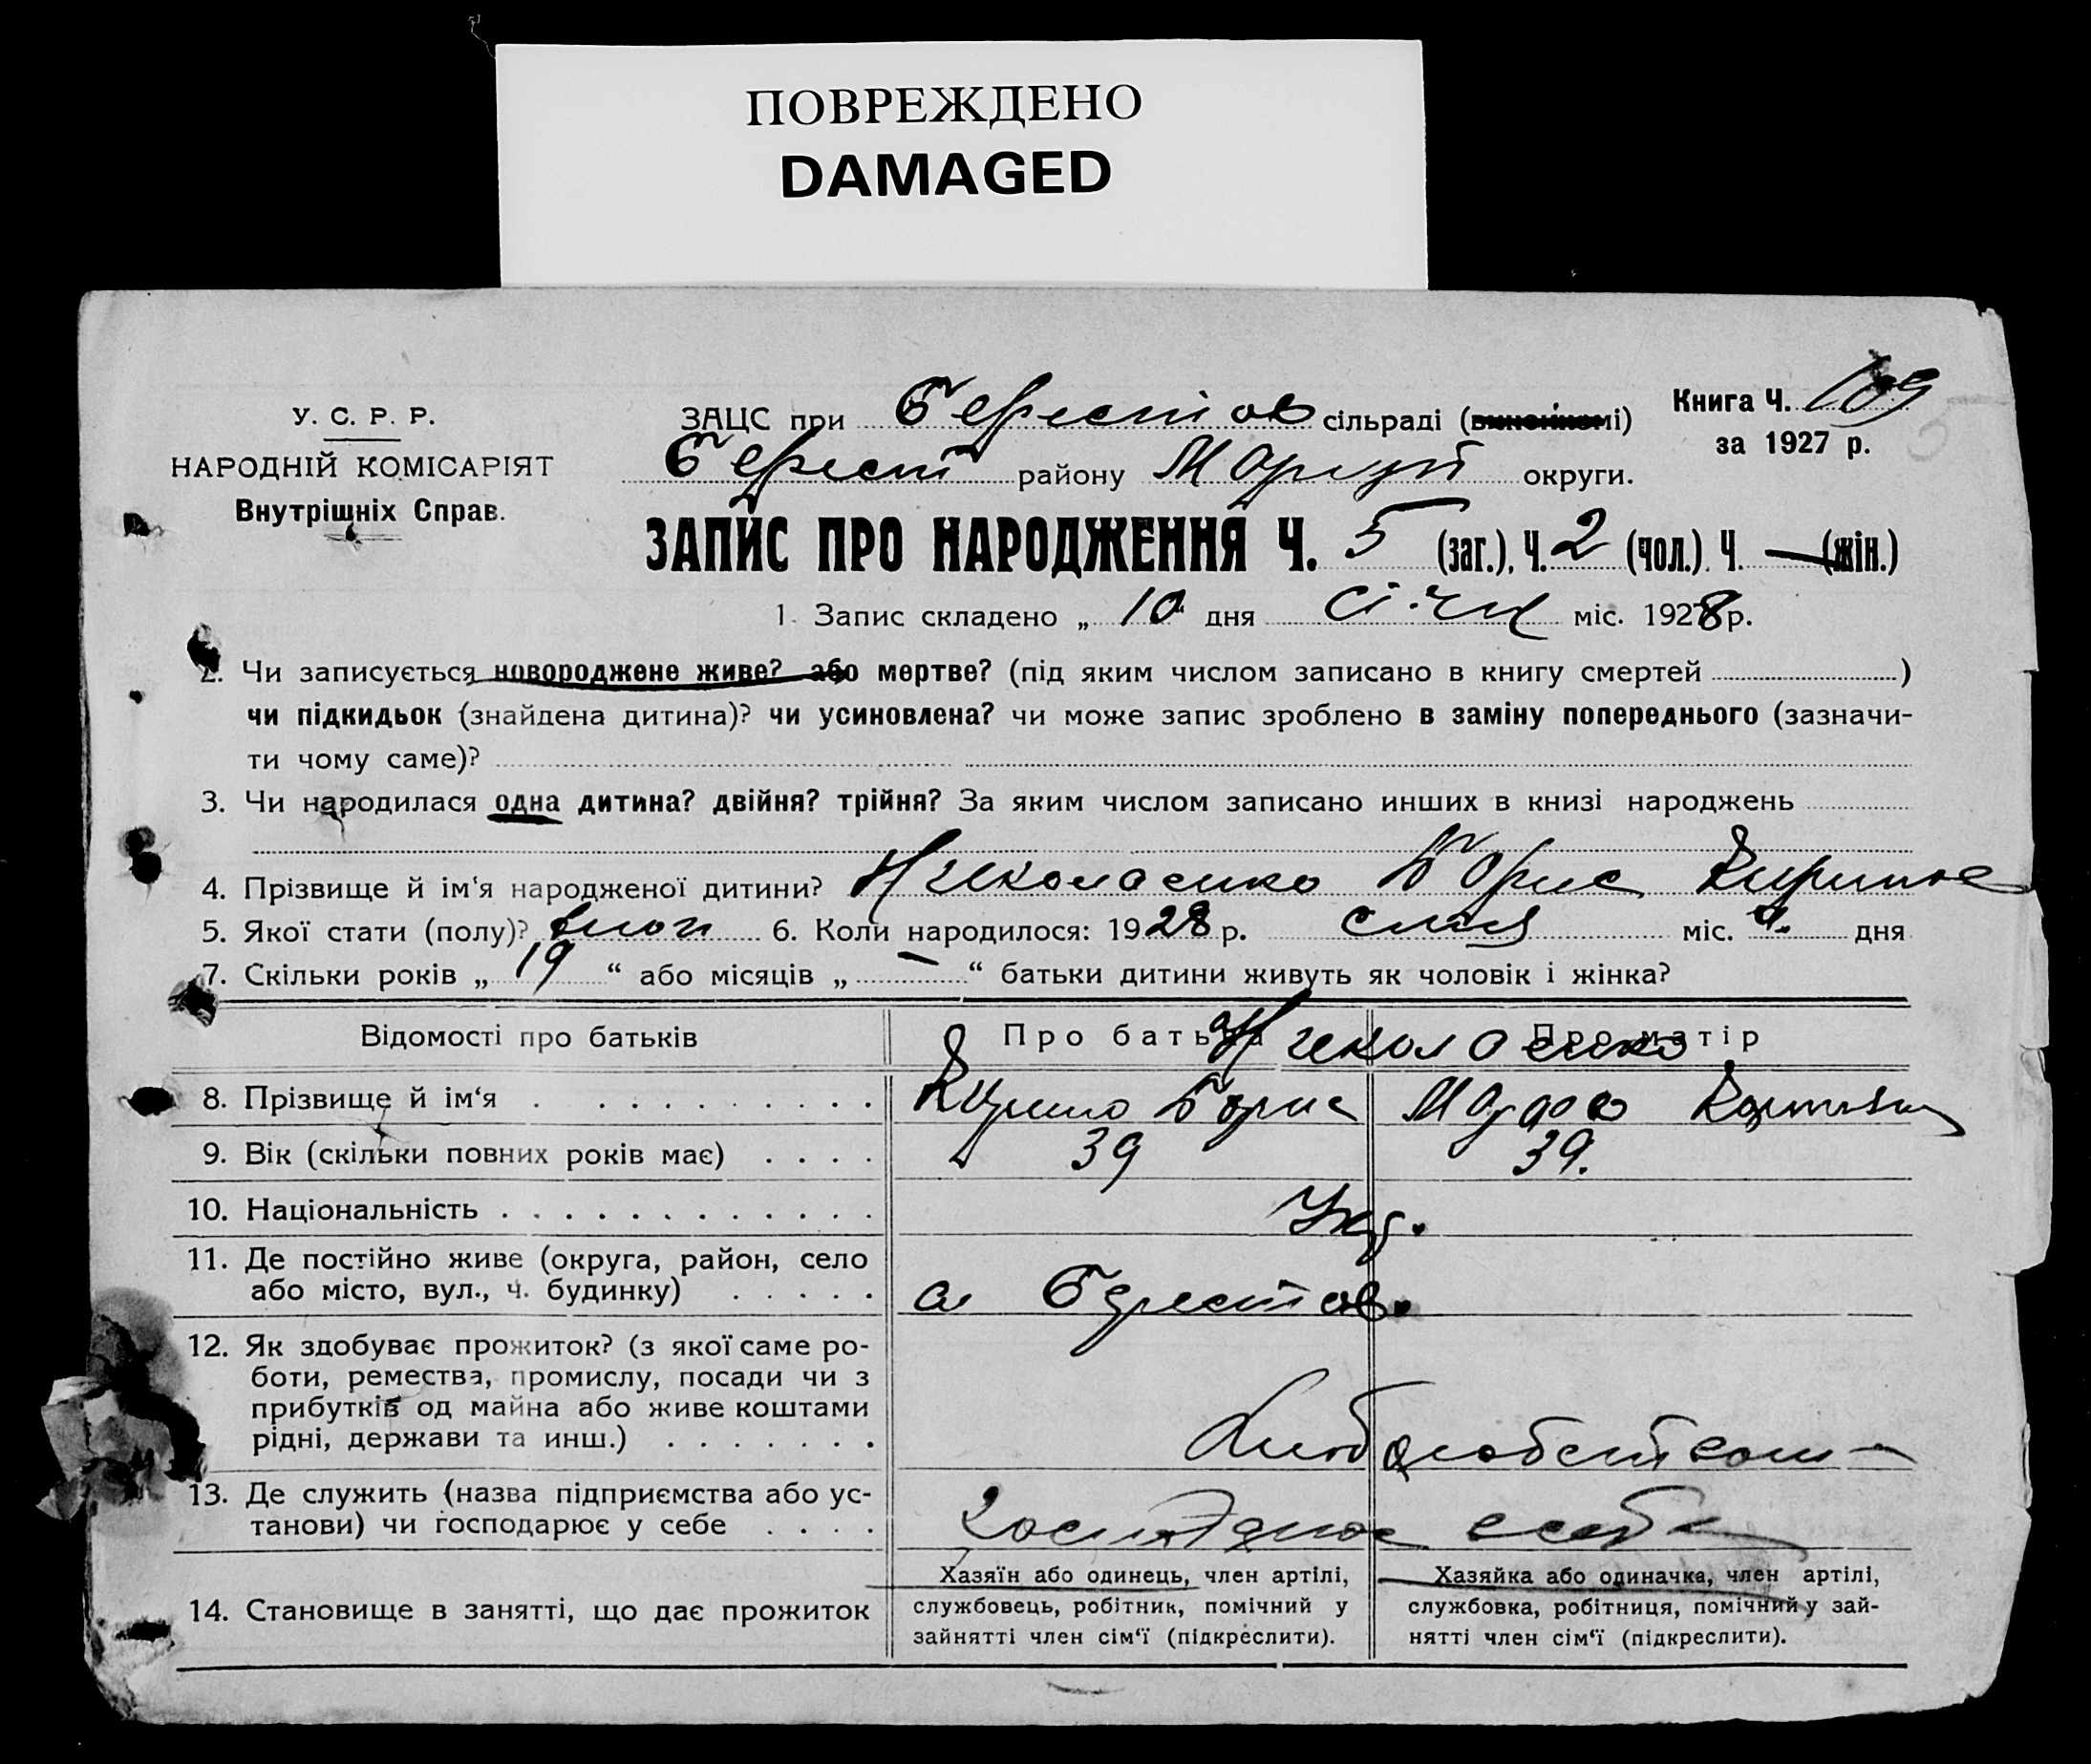 ПОВРЕЖДЕНО
DAMAGED
У. С. Р. Р.
НАРОДНІЙ КОМІСАРІЯТ
Внутрішніх Справ.
ЗАЦС при Берестов сільраді (виконкомі)
Берест району Маріуп округи.
Книга Ч. 109
за 1927 р.
ЗАПИС ПРО НАРОДЖЕННЯ Ч. 5 (заг.), Ч. 2 (чол.) Ч. — (жін.)
1. Запис складено „ 10 “ дня Січня міс. 1928 р.
2. Чи записується новороджене живе? або мертве? (під яким числом записано в книгу смертей )
чи підкидьок (знайдена дитина)? чи усиновлена? чи може запис зроблено в заміну попереднього (зазначи-
ти чому саме)?
3. Чи народилася одна дитина? двійня? трійня? За яким числом записано инших в книзі народжень
4. Прізвище й ім‘я народженої дитини? Николаенко Борис Кирилов
5. Якої стати (полу)? 6. Коли народилося: 1928 р. Січня міс. 9. дня
7. Скільки років „ 19 “ або місяців „ — “ батьки дитини живуть як чоловік і жінка?
Відомості про батьків Про батька Про матір
Николаенко
8. Прізвище й ім‘я . . . . . . . . . . Кирило Борис
9. Вік (скільки повних років має) . . . . 39 39.
10. Національність . . . . . . . . . . . . . Укр.
11. Де постійно живе (округа, район, село
або місто, вул., ч. будинку) . . . . . с Берестов.
12. Як здобуває прожиток? (з якої саме ро-
боти, ремества, промислу, посади чи з
прибутків од майна або живе коштами
рідні, держави та инш.) . . . . . . .
13. Де служить (назва підприємства або ус-
танови) чи господарює у себе . . . .
14. Становище в занятті, що дає прожиток
Хазяїн або одинець, член артілі,
службовець, робітник, помічний у
зайнятті член сім‘ї (підкреслити).
Хазяйка або одиначка, член артілі,
службовка, робітниця, помічний у зай-
нятті член сім‘ї (підкреслити).